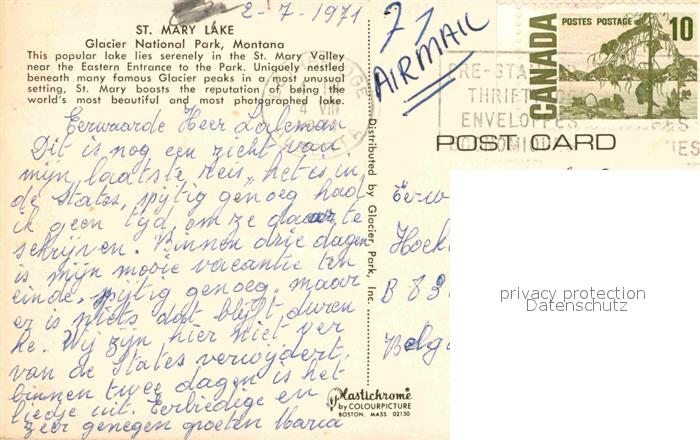 2-7-1971
71
AIRMAIL
ST. MARY LAKE
Glacier National Park, Montana
This popular lake lies serenely in the St. Mary Valley
near the Eastern Entrance to the Park. Uniquely nestled
beneath many famous Glacier peaks in a most unusual
setting, St. Mary boasts the reputation of being the
world's most beautiful and most photographed lake.
CANADA
POSTES POSTAGE
10
THRIFT
ENVELOPPES
POST CARD
Eerwaarde Heer
Dit is nog een zicht van
mijn laatste reis, het is in
de States, spijtig genoeg had
ik geen tijd om ze daar te
schrijven. Binnen drie dagen
is mijn mooie vacantie ten
einde, spijtig genoeg, maar
er is niets dat blijft duren
he. Wij zijn hier niet ver
van de States verwijdert.
binnen twee dagen is het
liedje uit. Eerbiedige en
zeer genegen groeten Maria
Distributed by Glacier, Park, Inc.
Eerw
Hoek
B 83
Belg
privacy protection
Datenschutz
Plastichrome
by COLOURPICTURE
BOSTON, MASS. 02130